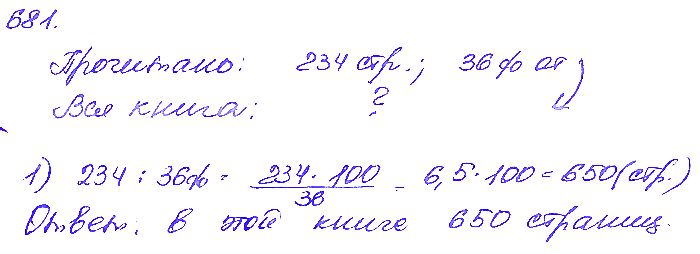 681.
Прочитано: 234 стр.; 36% от
Вся книга: ?
1) 234 : 36% = 234 · 100 / 36 = 6,5 · 100 = 650 (стр.)
Ответ: в этой книге 650 страниц.